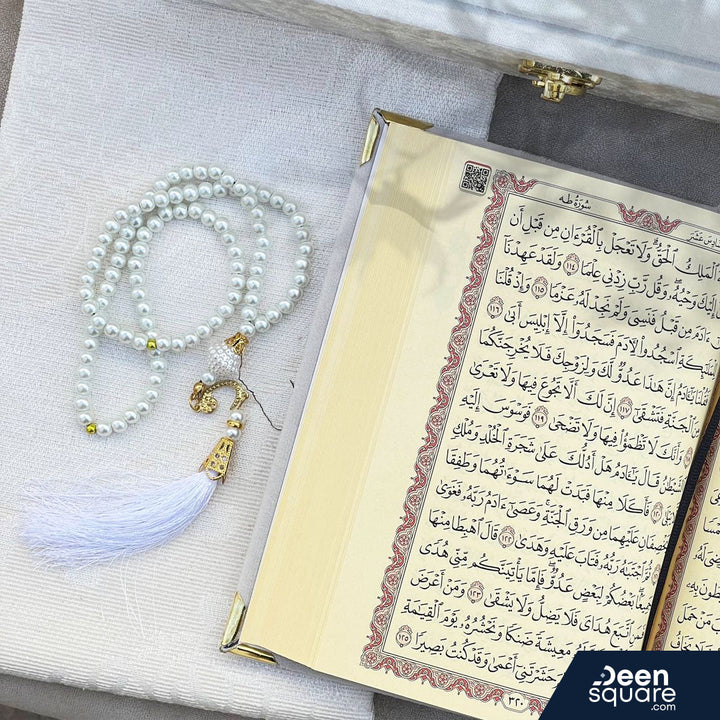 سُورَةُ طه
ٱلْمَلِكُ ٱلْحَقُّ ۗ وَلَا تَعْجَلْ بِٱلْقُرْءَانِ مِن قَبْلِ أَن
إِلَيْكَ وَحْيُهُۥ ۖ وَقُل رَّبِّ زِدْنِى عِلْمًا ١١٤ وَلَقَدْ عَهِدْنَآ
ءَادَمَ مِن قَبْلُ فَنَسِىَ وَلَمْ نَجِدْ لَهُۥ عَزْمًا ١١٥ وَإِذْ قُلْنَا
ٱسْجُدُوا۟ لِءَادَمَ فَسَجَدُوٓا۟ إِلَّآ إِبْلِيسَ أَبَىٰ ١١٦
يَٰٓـَٔادَمُ إِنَّ هَٰذَا عَدُوٌّ لَّكَ وَلِزَوْجِكَ فَلَا يُخْرِجَنَّكُمَا
ٱلْجَنَّةِ فَتَشْقَىٰٓ ١١٧ إِنَّ لَكَ أَلَّا تَجُوعَ فِيهَا وَلَا تَعْرَىٰ
وَأَنَّكَ لَا تَظْمَؤُا۟ فِيهَا وَلَا تَضْحَىٰ ١١٩ فَوَسْوَسَ إِلَيْهِ
قَالَ يَٰٓـَٔادَمُ هَلْ أَدُلُّكَ عَلَىٰ شَجَرَةِ ٱلْخُلْدِ وَمُلْكٍ
١٢٠ فَأَكَلَا مِنْهَا فَبَدَتْ لَهُمَا سَوْءَٰتُهُمَا وَطَفِقَا
عَلَيْهِمَا مِن وَرَقِ ٱلْجَنَّةِ ۚ وَعَصَىٰٓ ءَادَمُ رَبَّهُۥ فَغَوَىٰ
ثُمَّ ٱجْتَبَٰهُ رَبُّهُۥ فَتَابَ عَلَيْهِ وَهَدَىٰ ١٢٢ قَالَ ٱهْبِطَا مِنْهَا
بَعْضُكُمْ لِبَعْضٍ عَدُوٌّ ۖ فَإِمَّا يَأْتِيَنَّكُم مِّنِّى هُدًى
ٱتَّبَعَ هُدَاىَ فَلَا يَضِلُّ وَلَا يَشْقَىٰ ١٢٣ وَمَنْ أَعْرَضَ
مَعِيشَةً ضَنكًا وَنَحْشُرُهُۥ يَوْمَ ٱلْقِيَٰمَةِ
حَشَرْتَنِىٓ أَعْمَىٰ وَقَدْ كُنتُ بَصِيرًا ١٢٥
٣٢٠
Deen
square
.com